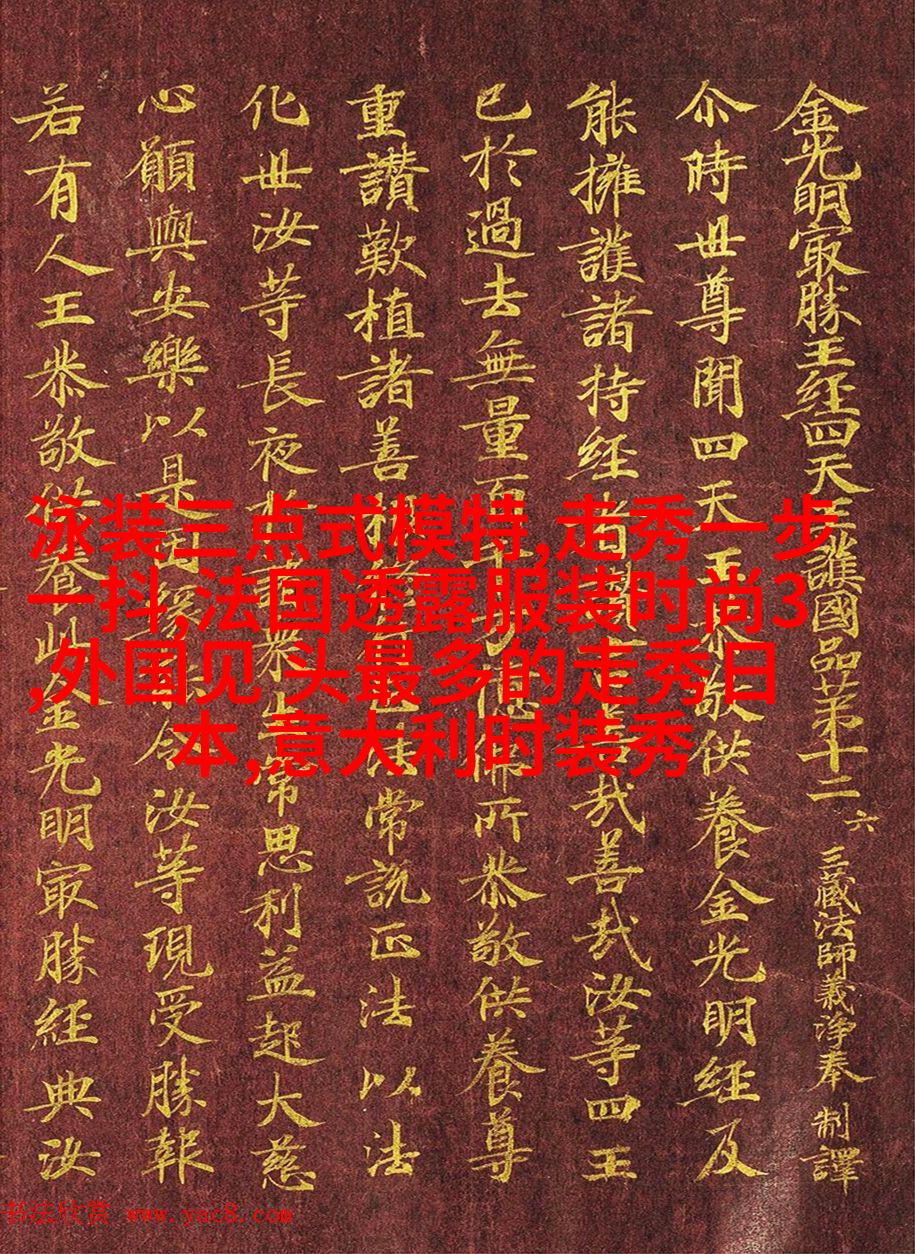 金光明㝡勝王経四天王護國品苐十二 六 三藏法師義淨奉 制譯
尒時世尊聞四天王恭敬供養金光明経及
能擁護諸持経者善哉善哉汝等四王
已於過去無量百千万億佛所恭敬供養尊
重讚歎植諸善根常説正法以法
化世汝等長夜於諸衆生常思利益起大慈
心願與安樂以是因縁令汝等現受勝報
若有人王恭敬供養此金光明㝡勝経典汝
泳装三点式模特,走秀一步
一抖,法国透露服装时尚3
,外国见 头最多的走秀日
本,意大利时装秀
书法欣赏 www.yac8.com